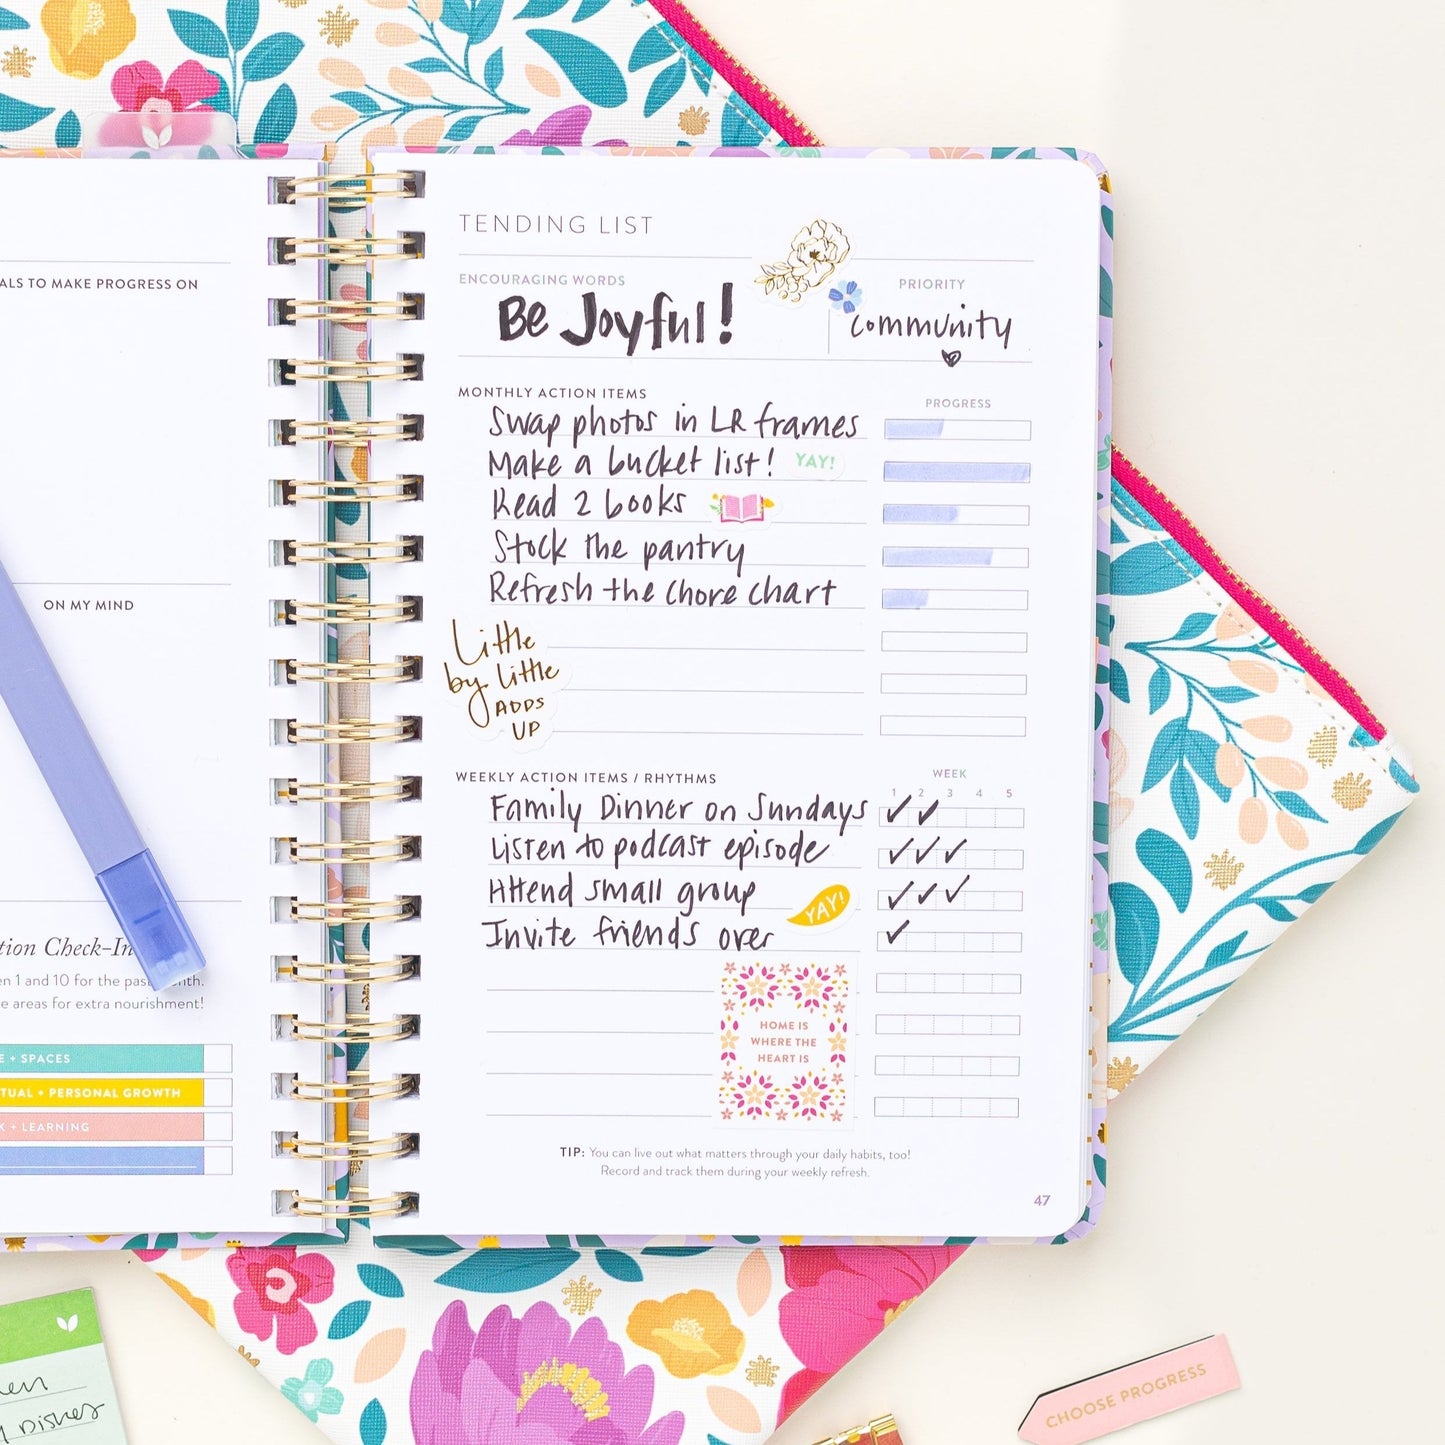 ALS TO MAKE PROGRESS ON
ON MY MIND
tion Check-In
en 1 and 10 for the past month.
e areas for extra nourishment!
E + SPACES
TUAL + PERSONAL GROWTH
K + LEARNING
TENDING LIST
ENCOURAGING WORDS
PRIORITY
Be Joyful!
community
MONTHLY ACTION ITEMS
PROGRESS
Swap photos in LR frames
Make a bucket list! YAY!
Read 2 books
Stock the pantry
Refresh the chore chart
Little
by little
ADDS
UP
WEEKLY ACTION ITEMS / RHYTHMS
WEEK
1 2 3 4 5
Family Dinner on Sundays
Listen to podcast episode
Attend small group
YAY!
Invite friends over
HOME IS
WHERE THE
HEART IS
TIP: You can live out what matters through your daily habits, too!
Record and track them during your weekly refresh.
47
Dishes
CHOOSE PROGRESS